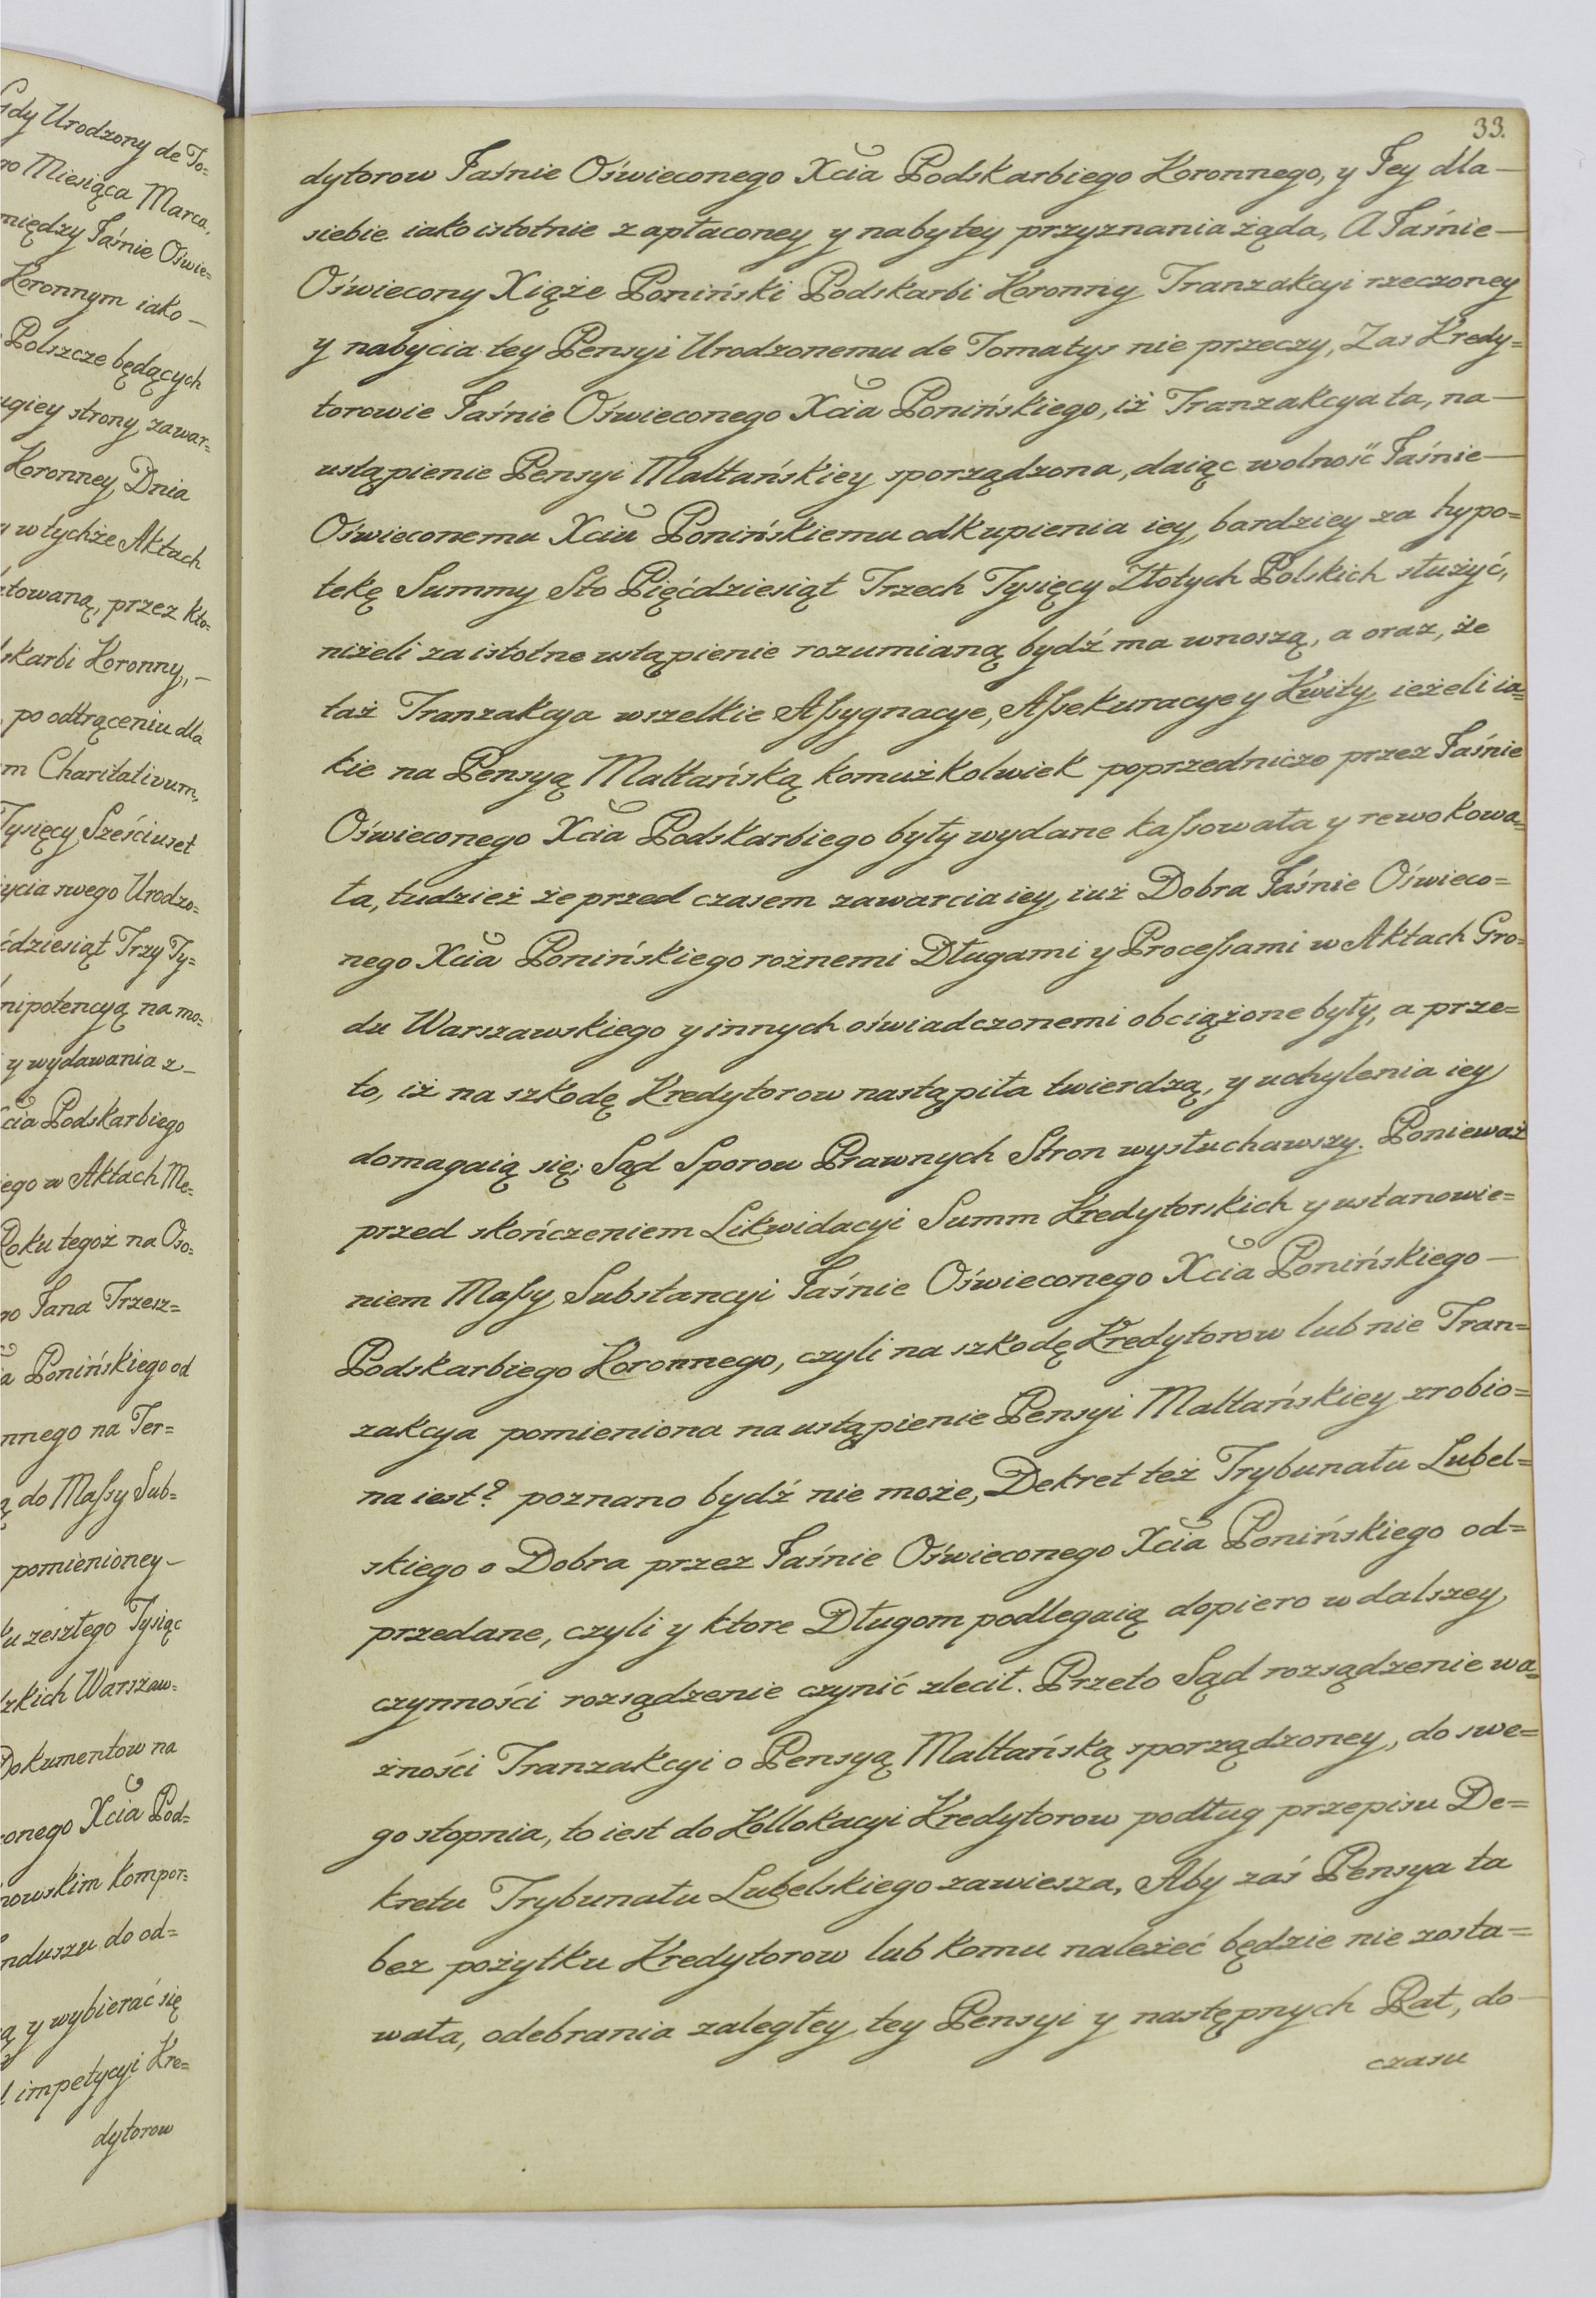 Gdy Urodzony de To=
go Miesiąca Marca,
między Jaśnie Oświe=
Koronnym iako —
Polszcze będących
ugiey strony zawar=
Koronney Dnia
y w tychże Aktach
towaną, przez kto=
skarbi Koronny, —
po odtrąceniu dla
m Charitativum,
Tysięcy Sześciuset
ycia swego Urodzo=
ćdziesiąt Trzy Ty=
nipotencyą na mo=
y wydawania z —
Xcia Podskarbiego
ego w Aktach Me=
Roku tegoż na Oso=
go Jana Trzesz=
a Ponińskiego od
nnego na Ter=
ą do Maſsy Sub=
pomienioney —
ku zeszłego Tysiąc
dzkich Warszaw=
Dokumentow na
onego Xcia Pod=
nowskim kompor=
nduszu do od=
ą y wybierać się
impetycyi Kre=
dytorow
33.
dytorow Jaśnie Oświeconego Xcia Podskarbiego Koronnego, y Jey dla —
siebie iako istotnie zapłaconey y nabytey przyznania żąda, A Jaśnie —
Oświecony Xiąże Poniński Podskarbi Koronny Tranzakcyi rzeczoney
y nabycia tey Pensyi Urodzonemu de Tomatys nie przeczy, Zas Kredy=
torowie Jaśnie Oświeconego Xcia Ponińskiego, iż Tranzakcya ta, na —
ustąpienie Pensyi Maltańskiey sporządzona, daiąc wolność Jaśnie —
Oświeconemu Xciu Ponińskiemu odkupienia iey, bardziey za hypo=
tekę Summy Sto Pięćdziesiąt Trzech Tysięcy Złotych Polskich służyć,
niżeli za istotne ustąpienie rozumianą bydź ma wnoszą, a oraz, że
taż Tranzakcya wszelkie Aſsygnacye, Aſsekuracye y Kwity, ieżeli ia=
kie na Pensyą Maltańską komużkolwiek poprzedniczo przez Jaśnie
Oświeconego Xcia Podskarbiego były wydane kaſsowała y rewokowa=
ła, tudzież że przed czasem zawarcia iey, iuż Dobra Jaśnie Oświeco=
nego Xcia Ponińskiego rożnemi Długami y Proceſsami w Aktach Gro=
du Warszawskiego y innych oświadczonemi obciążone były, a prze=
to, iż na szkodę Kredytorow nastąpiła twierdzą, y uchylenia iey
domagaią się; Sąd Sporow Prawnych Stron wysłuchawszy. Ponieważ
przed skończeniem Likwidacyi Summ Kredytorskich y ustanowie=
niem Maſsy Substancyi Jaśnie Oświeconego Xcia Ponińskiego —
Podskarbiego Koronnego, czyli na szkodę Kredytorow lub nie Tran=
zakcya pomieniona na ustąpienie Pensyi Maltańskiey zrobio=
na iest? poznano bydź nie może, Dekret też Trybunału Lubel=
skiego o Dobra przez Jaśnie Oświeconego Xcia Ponińskiego od=
przedane, czyli y ktore Długom podlegaią dopiero w dalszey
czynności rozsądzenie czynić zlecił. Przeto Sąd rozsądzenie wa=
żności Tranzakcyi o Pensyą Maltańską sporządzoney, do swe=
go stopnia, to iest do Kollokacyi Kredytorow podług przepisu De=
kretu Trybunału Lubelskiego zawiesza, Aby zaś Pensya ta
bez pożytku Kredytorow lub komu należeć będzie nie zosta=
wała, odebrania zaległey tey Pensyi y następnych Rat, do —
czasu